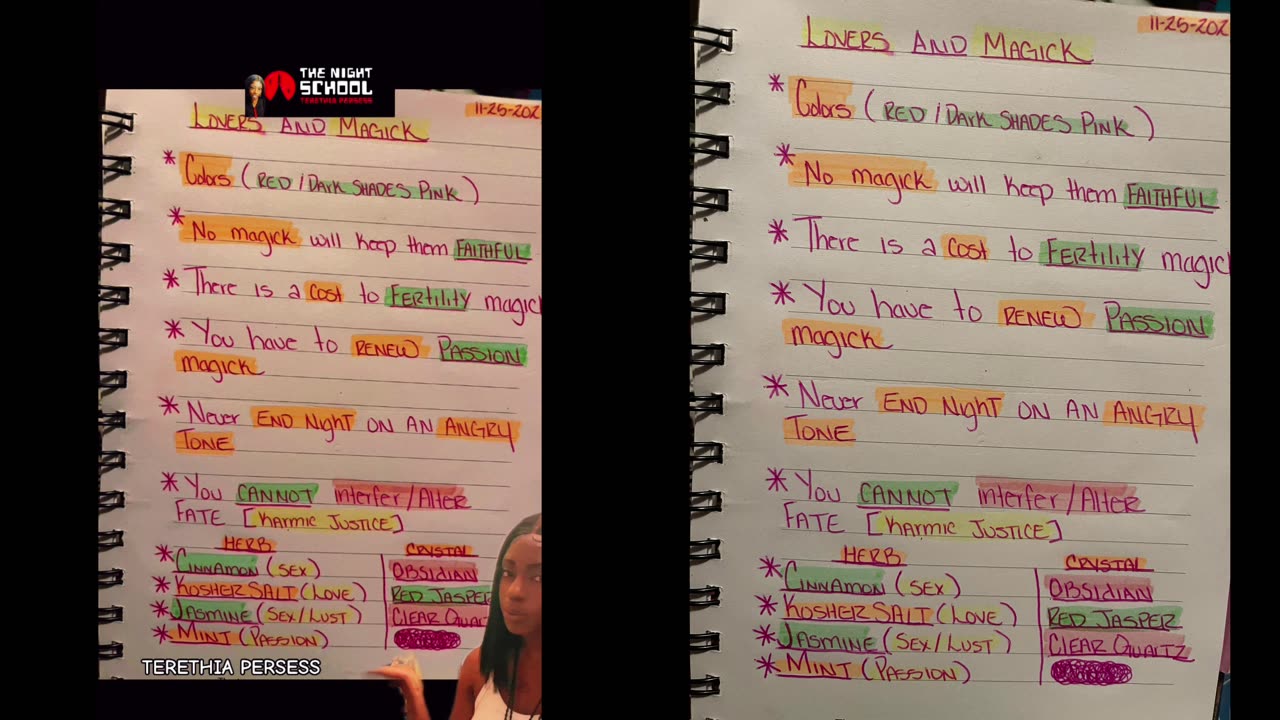 THE NIGHT
SCHOOL
TERETHIA PERSESS
11-25-202
LOVERS AND MAGICK
* Colors (RED / DARK SHADES PINK)
* No magick will keep them FAITHFUL
* There is a cost to FERTILITY magick
* You have to RENEW PASSION
magick
* Never END Night ON AN ANGRY
TONE
* You CANNOT interfer/Alter
FATE [KARMIC JUSTICE]
HERB CRYSTAL
* CINNAMON (SEX) OBSIDIAN
* KOSHER SALT (LOVE) RED JASPER
* JASMINE (SEX/LUST) CLEAR QUART
* MINT (PASSION)
TERETHIA PERSESS
11-25-202
LOVERS AND MAGICK
* Colors (RED / DARK SHADES PINK)
* No magick will keep them FAITHFUL
* There is a cost to FERTILITY magick
* You have to RENEW PASSION
magick
* Never END Night ON AN ANGRY
TONE
* You CANNOT interfer/Alter
FATE [KARMIC JUSTICE]
HERB CRYSTAL
* CINNAMON (SEX) OBSIDIAN
* KOSHER SALT (LOVE) RED JASPER
* JASMINE (SEX/LUST) CLEAR QUARTZ
* MINT (PASSION)